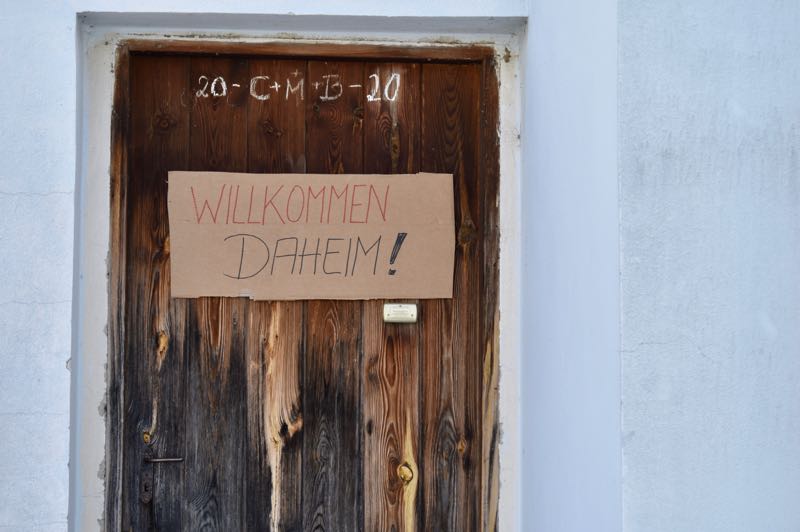 20-C+M+B-20
WILLKOMMEN
DAHEIM!